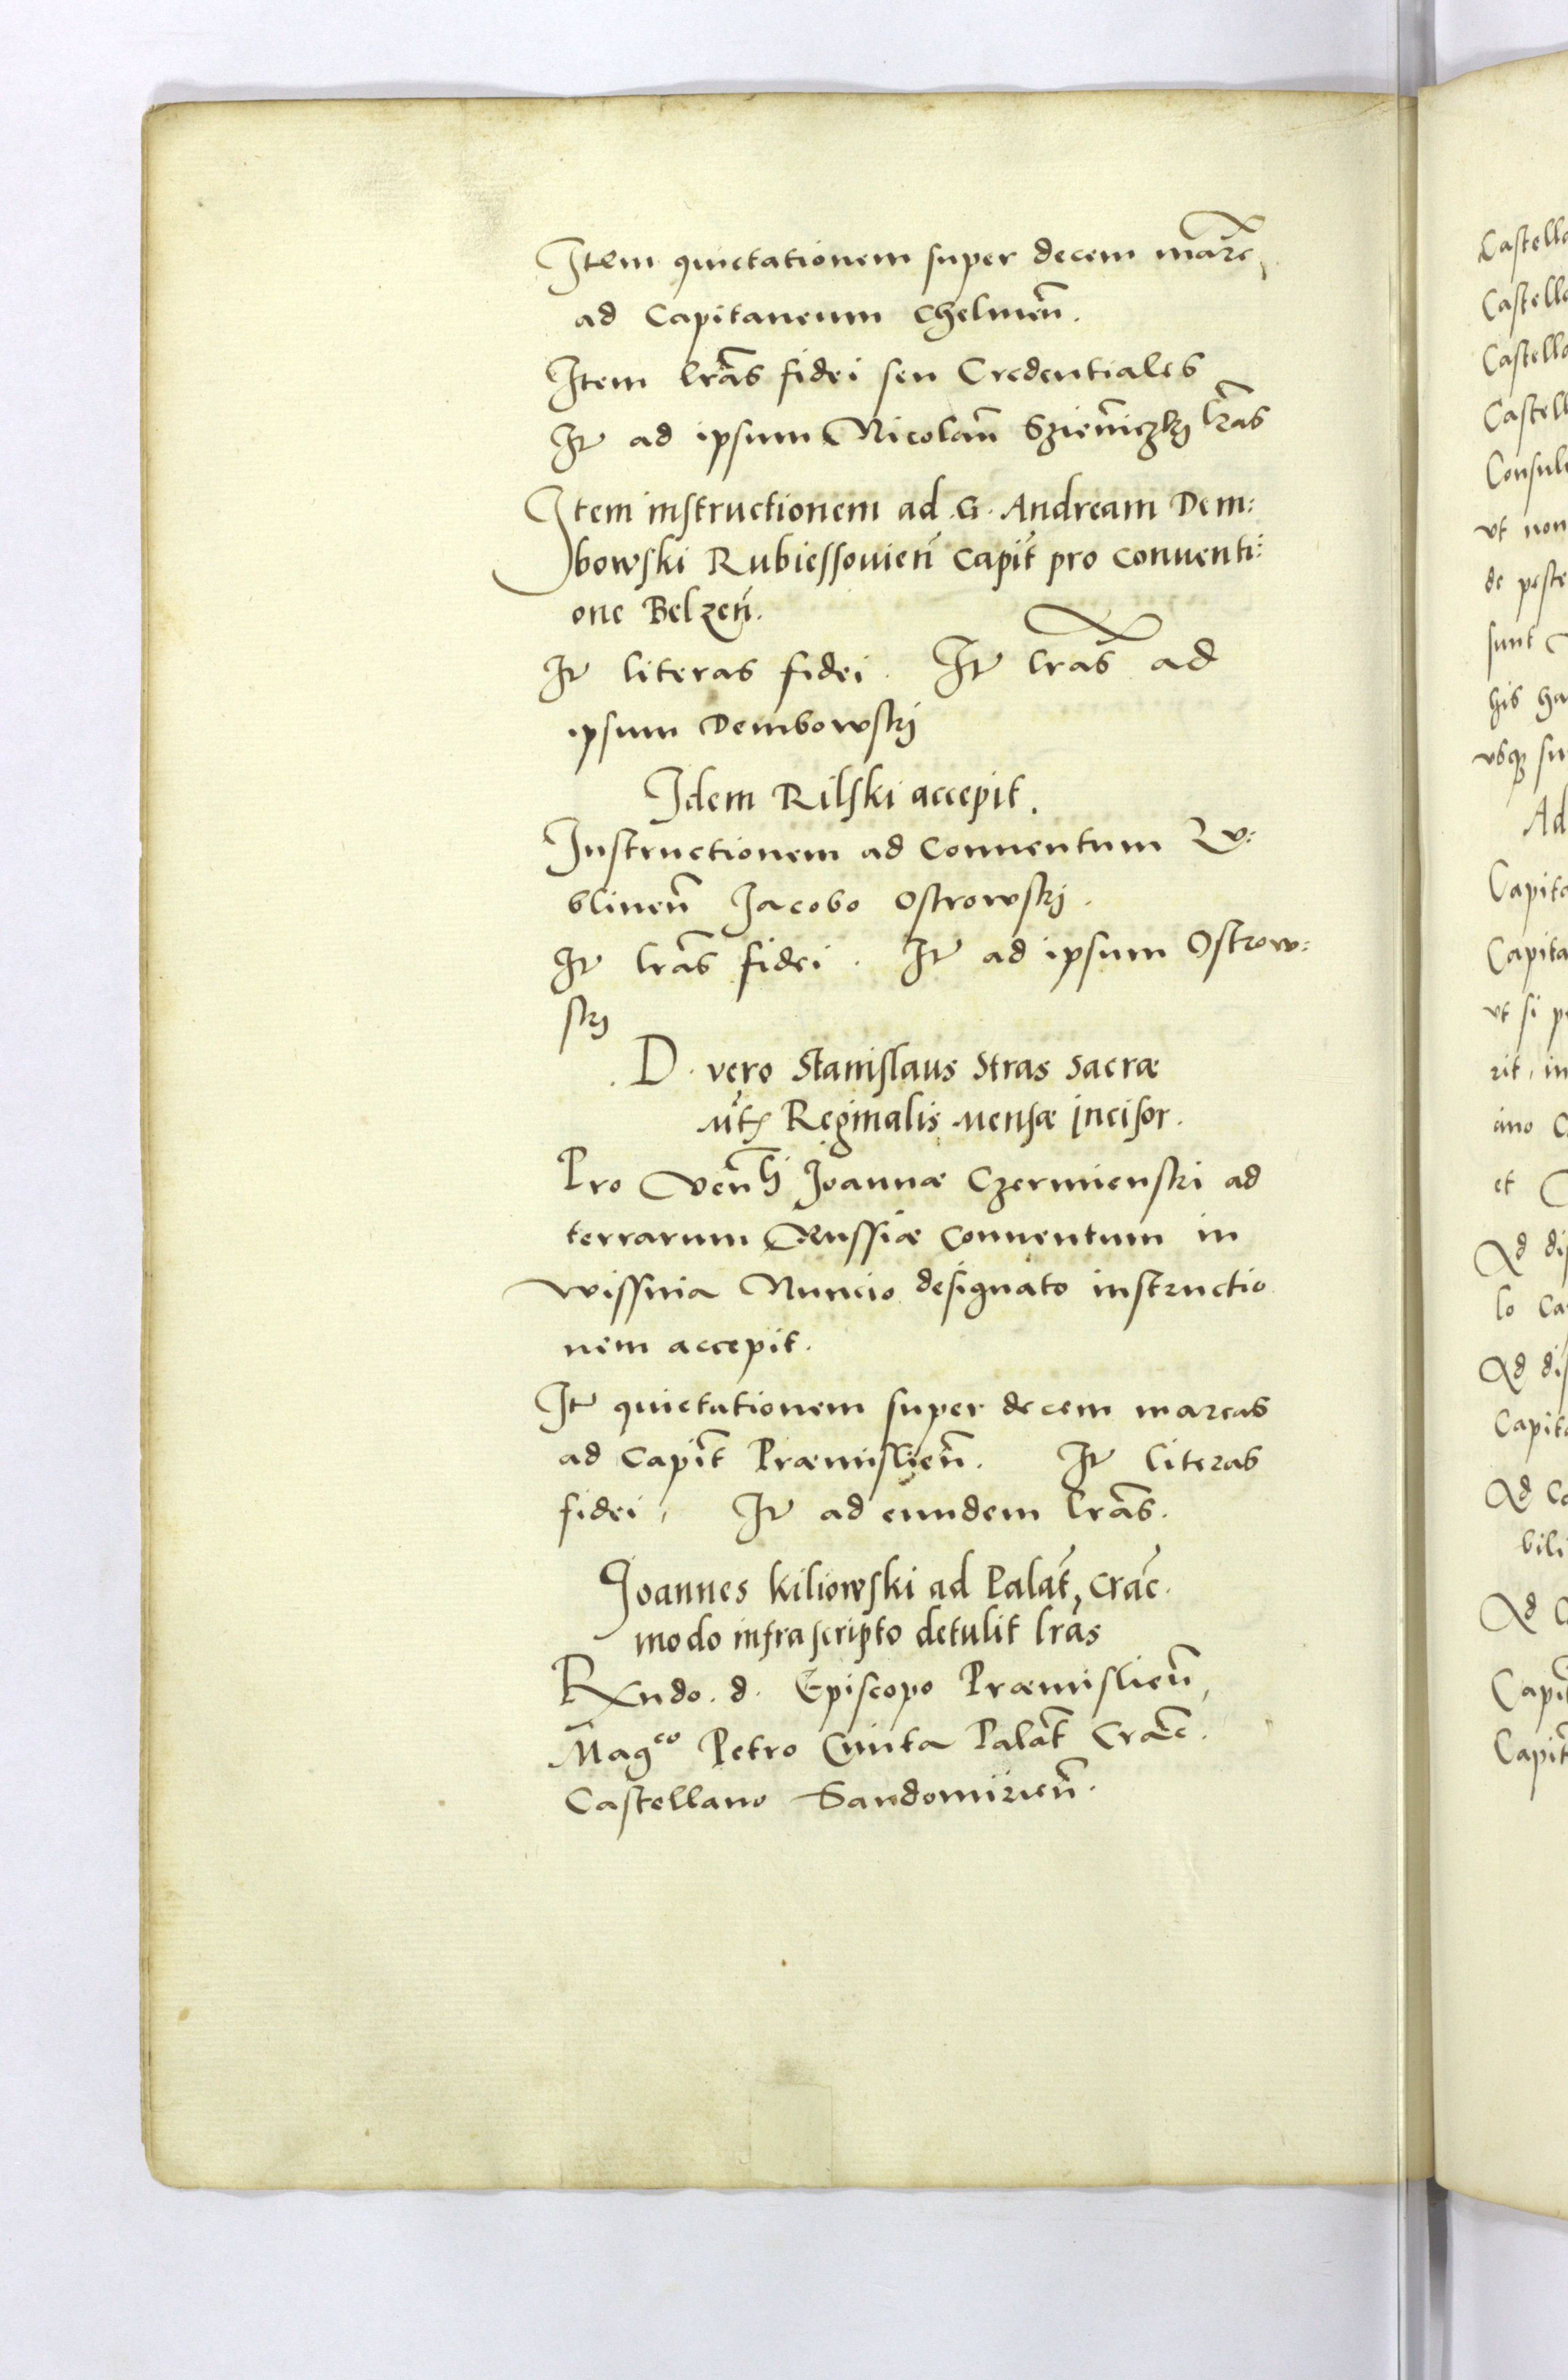 Item quietationem super decem marc̃,
ad Capitaneum Chelmeñ.
Item lr̃as fidei seu Credentiales
It̃ ad ipsum Nicolaũ Szienĩczkj lr̃as
Item instructionem ad .G. Andream Dem:
bowski Rubiessovień capit̃ pro conventi:
one Belzeń.
It̃ literas fidei. It̃ lras̃ ad
ipsum Dembowskj
Idem Rilski accepit.
Instructionem ad Conventum Lu:
blineñ Jacobo Ostrowskj.
It̃ lrãs fidei. It̃ ad ipsum Ostrow:
skj
.D. vero Stanislaus Stras Sacræ
Mt̃ Reginalis Mensæ incisor.
Pro Joannæ Czermienski ad
terrarum Russiæ Conventum in
Wissnia Nuncio designato instructio
nem accepit.
It̃ quietationem super decem marcas
ad Capit̃ Præmislieñ. It̃ literas
fidei, It̃ ad eundem lrãs.
Joannes Kiliowski ad Palat̃, Crac̃.
modo infrascripto detulit lrãs
Rxndo. d. Episcopo Præmislieñ,
Mag^co Petro Cmita Palat̃ Crac̃.
Castellano Sandomirieñ.
Castell
Castell
Castell
Castell
Consul
ut non
de peste
sunt
his ha
usq su
Ad
Capita
Capita
ut si p
rit, in
ano C
et
Ad di
lo Ca
Ad dis
Capit
Ad Ca
bili
Ad C
Capit
Capit